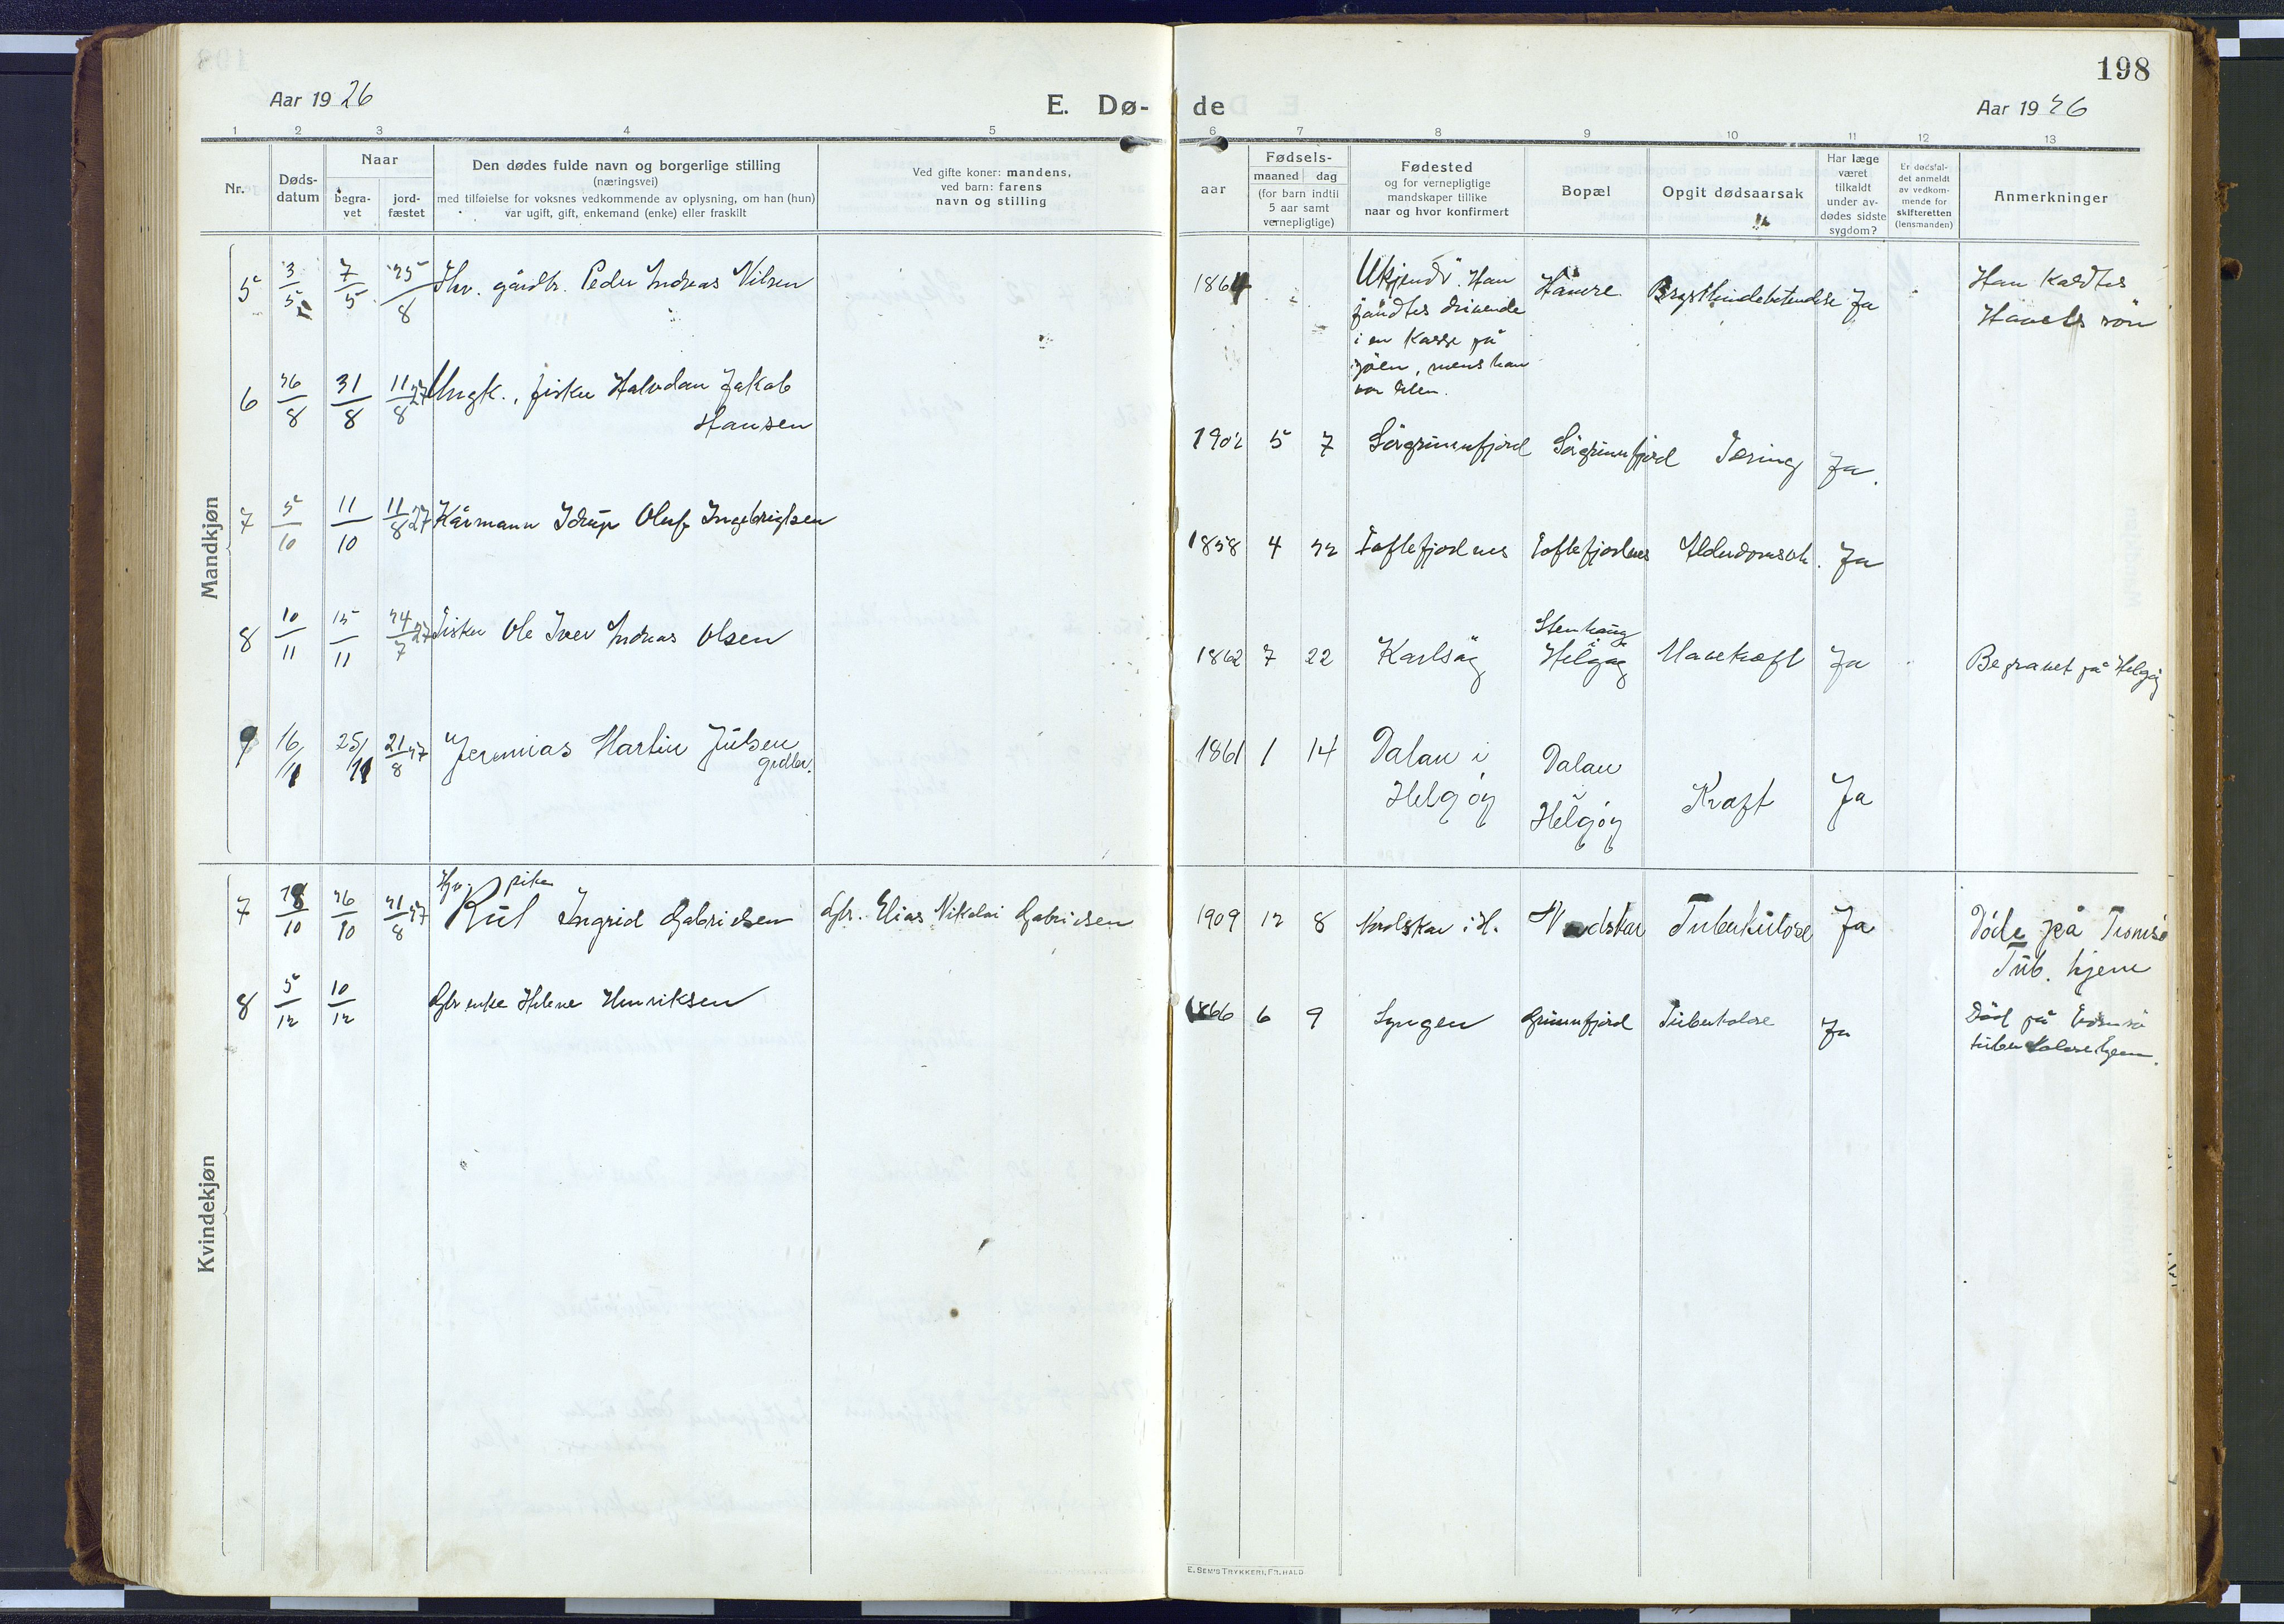 198
Aar 1926
E. Dø-
de
Aar 1926
1 2 3 4 5
6 7 8 9 10 11 12 13
Nr.
Døds-
datum
Naar
begra-
vet
jord-
fæstet
Den dødes fulde navn og borgerlige stilling
(næringsvei)
med tilføielse for voksnes vedkommende av oplysning, om han (hun)
var ugift, gift, enkemand (enke) eller fraskilt
Ved gifte koner: mandens,
ved barn: farens
navn og stilling
aar
Fødsels-
maaned dag
(for barn indtil
5 aar samt
vernepligtige)
Fødested
og for vernepligtige
mandskaper tillike
naar og hvor konfirmert
Bopæl
Opgit dødsaarsak
Har læge
været
tilkaldt
under av-
dødes sidste
sygdom?
Er dødsfal-
det anmeldt
av vedkom-
mende for
skifteretten
(lensmanden)
Anmerkninger
Mandkjøn
5 3/5 7/5 25/8 gårdbr. Peder Andreas Nilsen
1864 Ukjendt. Han
fandtes drivende
i en kasse på
sjöen, mens han
var liten.
Håmre Brysthindebetendelse Ja
Han kaldtes
Havets sön
6 26/8 31/8 11/8 27 Ungk., fisker Halvdan Jakob
Hansen
1902 5 7 Sörgrunnfjord Sörgrunnfjord Tæring Ja.
7 5/10 11/10 11/8 27 Kårmann Idrup Oluf Ingebrigtsen
1858 4 22 Toftefjordnes Toftefjordnes Alderdomssvk. Ja
8 10/11 15/11 24/7 27 Fisker Ole Iver Andreas Olsen
1862 7 22 Karlsöy
Stenhaug
i
Helgöy
Mavekræft Ja Begravet på Helgöy
9 16/11 25/11 21/8 27 Jeremias Martin Julsen
grdbr.
1861 1 14 Dalan i
Helgöy
Dalan
i
Helgöy
Kræft Ja
Kvindekjøn
7 18/10 26/10 21/8 27 pike
Rut Ingrid Gabrielsen Gbr. Elias Nikolai Gabrielsen
1909 12 8 Nordskar i H. Nordskar Tuberkulose Ja
Döde på Tromsö
Tub. hjem
8 5/12 10/12 Gbr enke Helene Henriksen
1866 6 9 Lyngen Grunnfjord Tuberkolose Ja
Död på Tromsö
tuberkolosehjem.
E. SEM'S TRYKKERI, FR.HALD